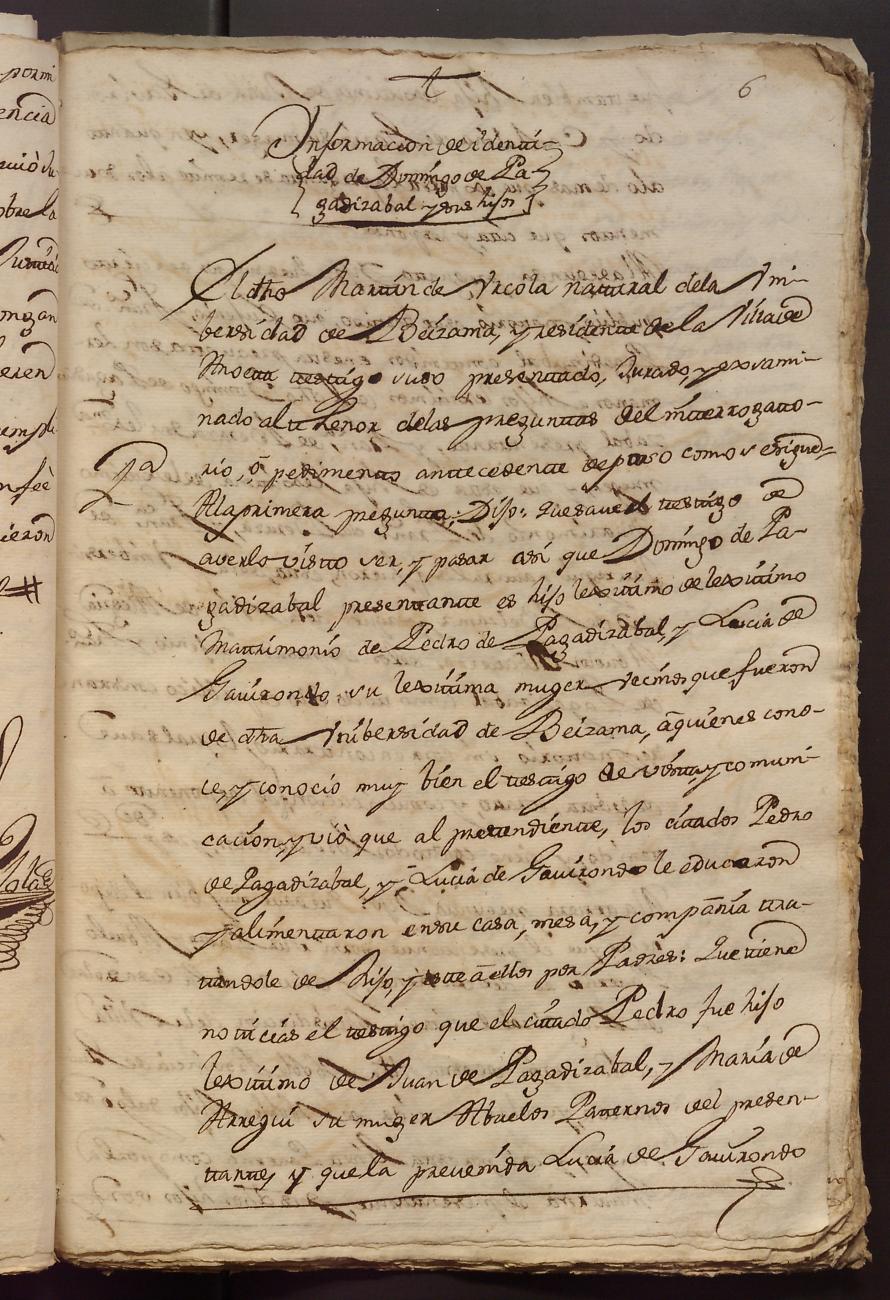 6
Informacion de identi-
dad de Domingo de Pa-
gadizabal y sus hijos
El dho Martin de Urcola natural dela Uni-
bersidad de Beizama, y residente de la Villa de
Anoeta testigo suso presentado, Jurado, y exsami-
nado al thenor delas preguntas del interrogato-
rio, o pedimento antecedente depuso como se sigue=
1ª
A la primera pregunta: Dijo: que save el testigo de
averlo visto ser, y pasar asi que Domingo de Pa-
gadizabal presentante es hijo lexitimo de lexitimo
Matrimonio de Pedro de Pagadizabal, y Lucia de
Gavirondo, su lexitima muger vecinos que fueron
de dha Unibersidad de Beizama, a quienes cono-
ce, y conocio muy bien el testigo de vista y comuni-
cacion, y viò que al pretendiente, los citados Pedro
de Pagadizabal, y Lucia de Gavirondo le educaron
y alimentaron en su casa, mesa, y compañia tra-
tandole de Hijo, y este a ellos por Padres: Que tiene
noticias el testigo que el citado Pedro fue hijo
lexitimo de Juan de Pagadizabal, y Maria de
Arregui su muger Abuelos Paternos del presen-
tante, y que la prevenida Lucia de Gavirondo